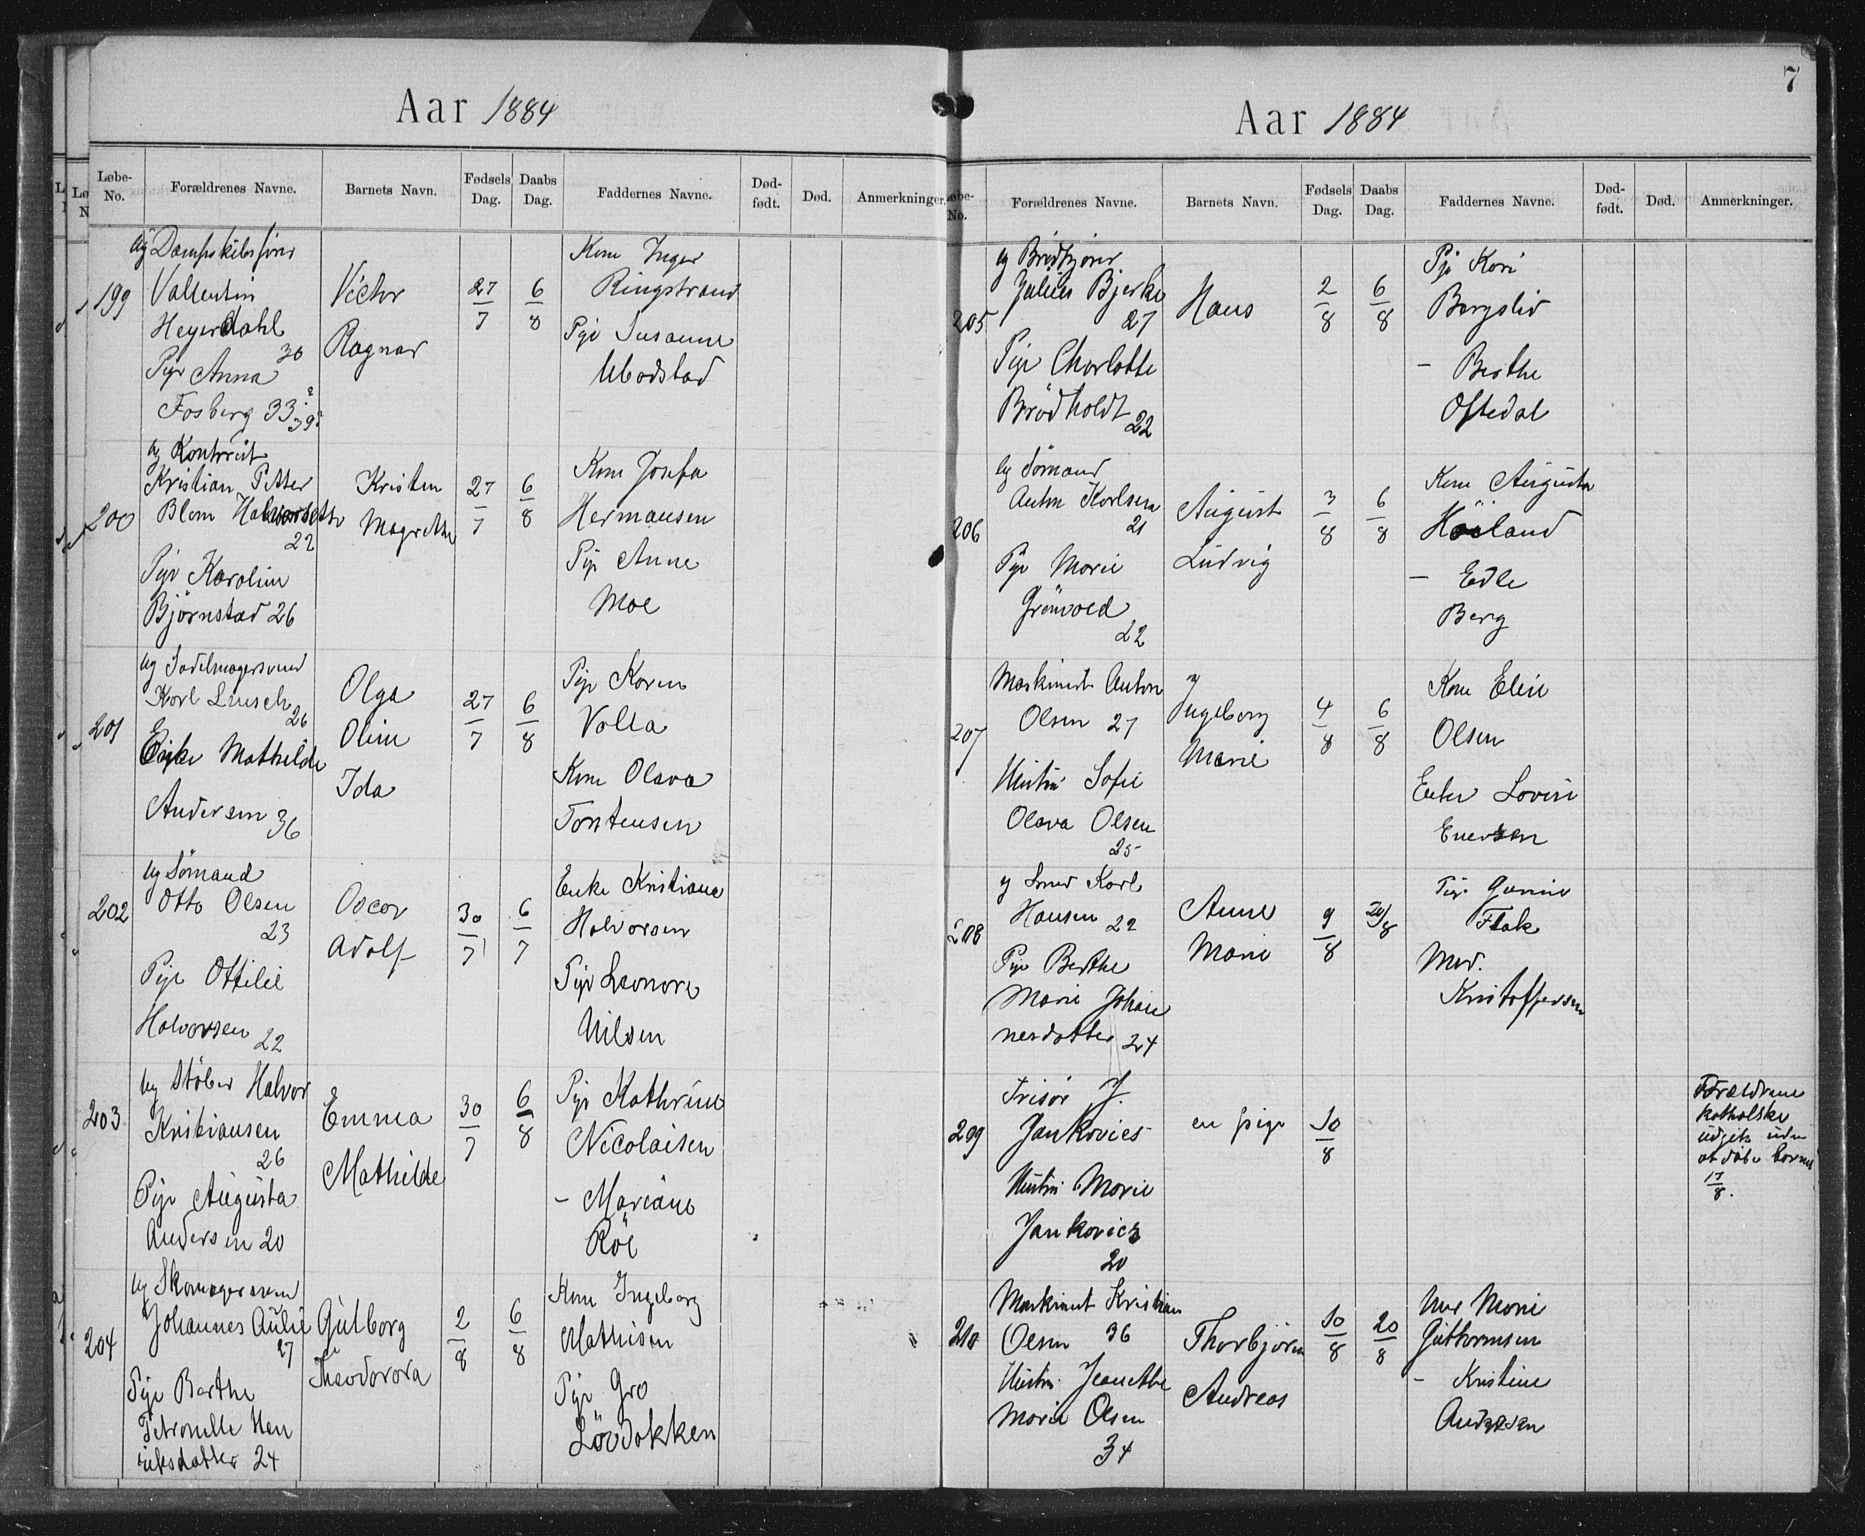 Aar 1884
Løbe-No. Forældrenes Navne. Barnets Navn. Fødsels Dag. Daabs Dag. Faddernes Navne. Død-født. Død. Anmerkninger.
199
Ug Dampskibsfører
Vallentin
Heyerdahl
30
Pige Anna
Fosberg 33
Victor
Ragnar
27/7
6/8
Kone Inger
Ringstrand
Pige Susanne
Ubodstad
200
Ug Kontorist
Kristian Petter
Blom
22
Pige Karoline
Bjørnstad 26
Kristen
Magrethe
27/7
6/8
Kone Josefa
Hermansen
Pige Anne
Moe
201
Ug Sadelmagersvend
Karl
26
Enke Mathilde
Andersen 36
Olga
Oline
Ida
27/7
6/8
Pige Karen
Volla
Kone Olava
Torstensen
202
Ug Sømand
Otto Olsen
23
Pige Ottilie
Halvorsen 22
Oscar
Adolf
30/7
6/7
Enke Kristiane
Halvorsen
Pige Leonore
Nilsen
203
Ug Støber Halvor
Kristiansen
26
Pige Augusta
Andersen 20
Emma
Mathilde
30/7
6/8
Pige Kathrine
Nicolaisen
– Mariane
Röe
204
Ug Skomagersvend
Johannes Aulie
27
Pige Berthe
Petronelle Hen
riksdatter 24
Gulborg
Theodorora
2/8
6/8
Kone Ingeborg
Mathisen
Pige Gro
Lövdokken
7
Aar 1884
Løbe-No. Forældrenes Navne. Barnets Navn. Fødsels Dag. Daabs Dag. Faddernes Navne. Død-født. Død. Anmerkninger.
205
Ug
Julius Bjerke
27
Pige Charlotte
Brödholdt 22
Hans
2/8
6/8
Pige Kari
Bergslid
– Berthe
Oftedal
206
Ug Sømand
Anton Karlsen
21
Pige Marie
Grönvold
22
August
Ludvig
3/8
6/8
Kone Augusta
Höiland
– Edle
Berg
207
Maskinist Anton
Olsen 27
Hustru Sofie
Olava Olsen
25
Ingeborg
Marie
4/8
6/8
Kone Elise
Olsen
Enke Lovise
Enersen
208
Ug Smed Karl
Hansen 22
Pige Berthe
Marie Johan
nesdatter 24
Anne
Marie
9/8
20/8
Pige Gunine
Flak
Mad.
Kristoffersen
209
Frisør J.
Jankovics
Hustru Marie
Jankovics
20
en pige
10/8
Forældrene
katholske
udgik uden
at døbe barnet
17/8.
210
Maskinist Kristian
Olsen 36
Hustru Jeanette
Marie Olsen
34
Thorbjörn
Andreas
10/8
20/8
Marie
Guttormsen
– Kristine
Andersen